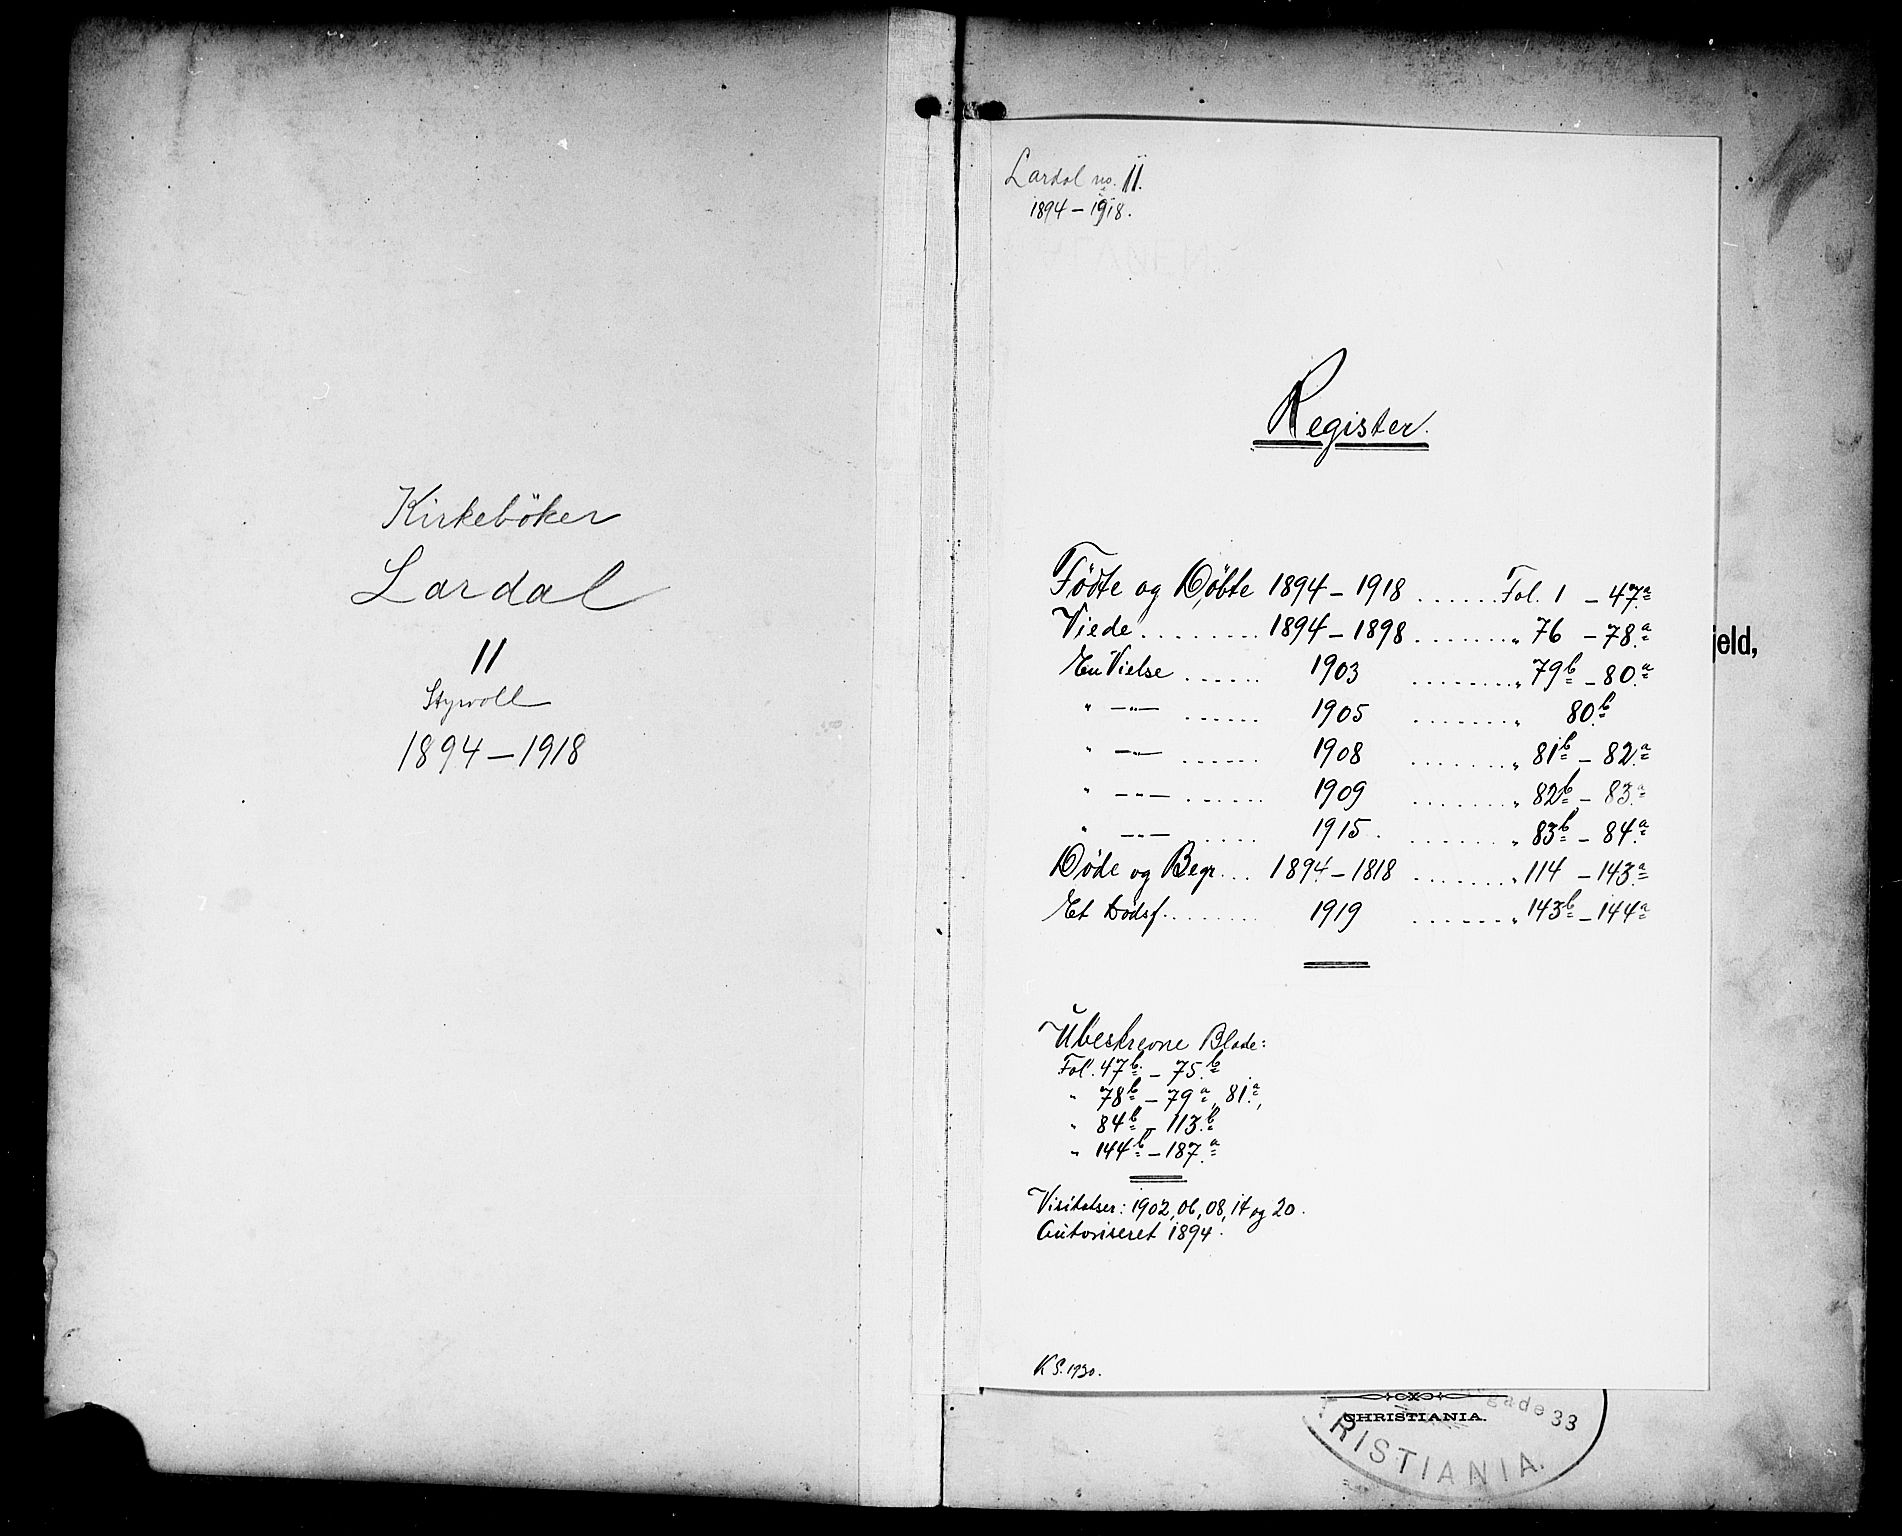 Kirkeböker
Lardal
11
Styvoll
1894 – 1918
Lardal no. 11.
1894 – 1918.
Register.
Födte og Døbte 1894 – 1918 ...... Fol. 1 – 47a
Viede ......... 1894 – 1898 ........ „ 76 – 78a
En Vielse ...... 1903 ........ „ 79b – 80a
" —"— ...... 1905 ........ „ 80b
" —"— ...... 1908 ........ „ 81b – 82a
" —"— ...... 1909 ........ „ 82b – 83a
" —"— ...... 1915. ........ „ 83b – 84a
Døde og Begr.... 1894 – 1818 ........ „ 114 – 143a
Et Dødsf......... 1919 ........ „ 143b – 144a
Ubeskrevne Blade:
Fol. 47b – 75b
" 78b – 79a, 81a,
" 84b – 113b
" 144b – 187a
Visitatser: 1902, 06, 08, 14 og 20.
Autoriseret 1894.
K S. 1930.
jeld,
CHRISTIANIA.
gade 33
RISTIANIA.